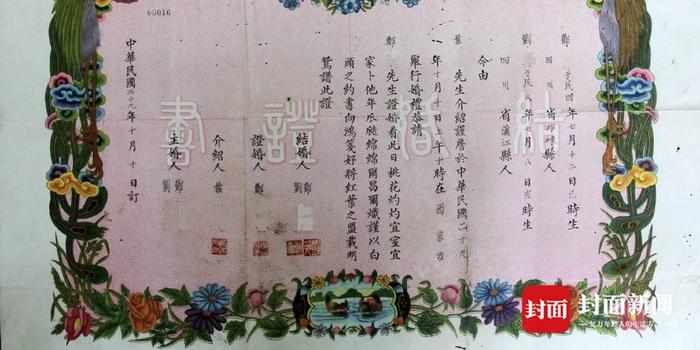 60016
結婚證書
鄭 于民四年七月十二日己時生
四川省邛崍縣人
劉 于民 年七月 日亥時生
四川省蒲江縣人
今由
葉 先生介紹謹詹於中華民國二十九
年十月十日上午十時在
舉行婚禮恭請
鄭 先生證婚看此日桃花灼灼宜室宜
家卜他年瓜瓞綿綿爾昌爾熾謹以白
頭之約書向鴻箋好將紅葉之盟載明
鴛譜此證
結婚人 鄭 劉
證婚人 鄭
介紹人 葉
主婚人 鄭 劉
中華民國二十九年十月十日訂
封面
封面新闻
亿万年轻人的生活方式